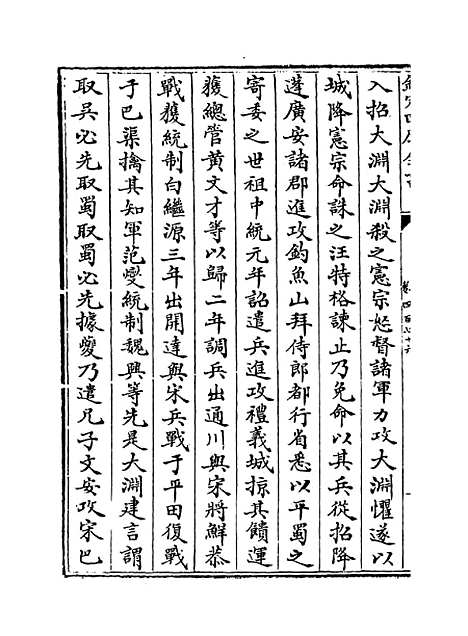 欽定四庫全書
卷四百六十六
入招大淵大淵殺之憲宗怒督諸軍力攻大淵懼遂以
城降憲宗命誅之汪特格諫止乃免命以其兵從招降
蓬廣安諸郡進攻釣魚山拜侍郎都行省悉以平蜀之
寄委之世祖中統元年詔遣兵進攻禮義城掠其饋運
獲總管黃文才等以歸二年調兵出通川與宋將鮮恭
戰獲統制白繼源三年出開達與宋兵戰于平田復戰
于巴渠擒其知軍范燮統制魏興等先是大淵建言謂
取吳必先取蜀取蜀必先據夔乃遣兄子文安攻宋巴